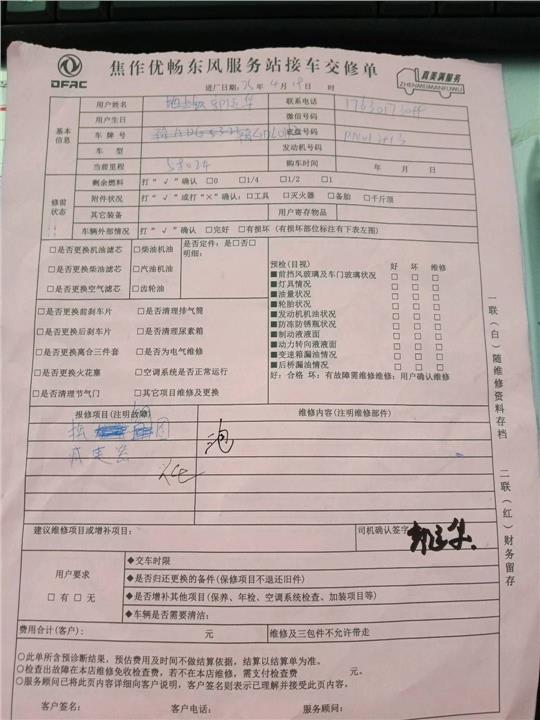 DFAC
焦作优畅东风服务站接车交修单
真美满服务
ZHENMEIMANFUWU
进厂日期: 年 4月19日 时
基本信息
用户姓名
联系电话
用户生日
微信号码
车牌号
底盘号码
车型
发动机号码
当前里程 58024
购车时间 年 月 日
修前状态
剩余燃料 打"√"确认 □0 □1/4 □1/2 □1
附件状况 打"√"或打"×"确认:□工具 □灭火器 □备胎 □千斤顶
其它装备
用户寄存物品
车辆外部情况 打"√"确认 □完好 □有损坏(有损坏部位标注有下表左图)
□是否更换机油滤芯 □柴油机油
□是否更换柴油滤芯 □汽油机油
□是否更换空气滤芯 □齿轮油
是否定件:是□否□
明细:
□是否更换前刹车片 □是否清理排气筒
□是否更换后刹车片 □是否清理尿素箱
□是否更换离合三件套 □是否为电气维修
□是否更换火花塞 □空调系统是否正常运行
□是否清理节气门 □其它项目维修及更换
预检(目视) 好 坏 维修
■前挡风玻璃及车门玻璃状况 □ □ □
■灯具情况 □ □ □
■油量状况 □ □ □
■轮胎状况 □ □ □
■发动机机油状况 □ □ □
■防冻防锈瓶状况 □ □ □
■制动液液面 □ □ □
■动力转向液液面 □ □ □
■变速箱漏油情况 □ □ □
■后桥漏油情况 □ □ □
好:合格 坏:有故障需维修维修:用户确认维修
报修项目(注明故障)
维修内容(注明维修部件)
建议维修项目或增补项目:
司机确认签字
用户要求
□有 □无
◆交车时限
◆是否归还更换的备件(保修项目不退还旧件)
◆是否增补其他项目(保养、年检、空调系统检查、加装项目等)
◆车辆是否需要清洁:
费用合计(客户): 元
维修及三包件不允许带走
○此单所含预诊断结果,预估费用及时间不做结算依据,结算以结算单为准。
○检查出故障在本店维修免收检查费,若不在本店维修,需支付检查费 元。
○服务顾问已将此页内容详细向客户说明,客户签名则表示已理解并接受此页内容,
客户签名: 客户电话: 服务顾问:
一联(白)随维修资料存档
二联(红)财务留存